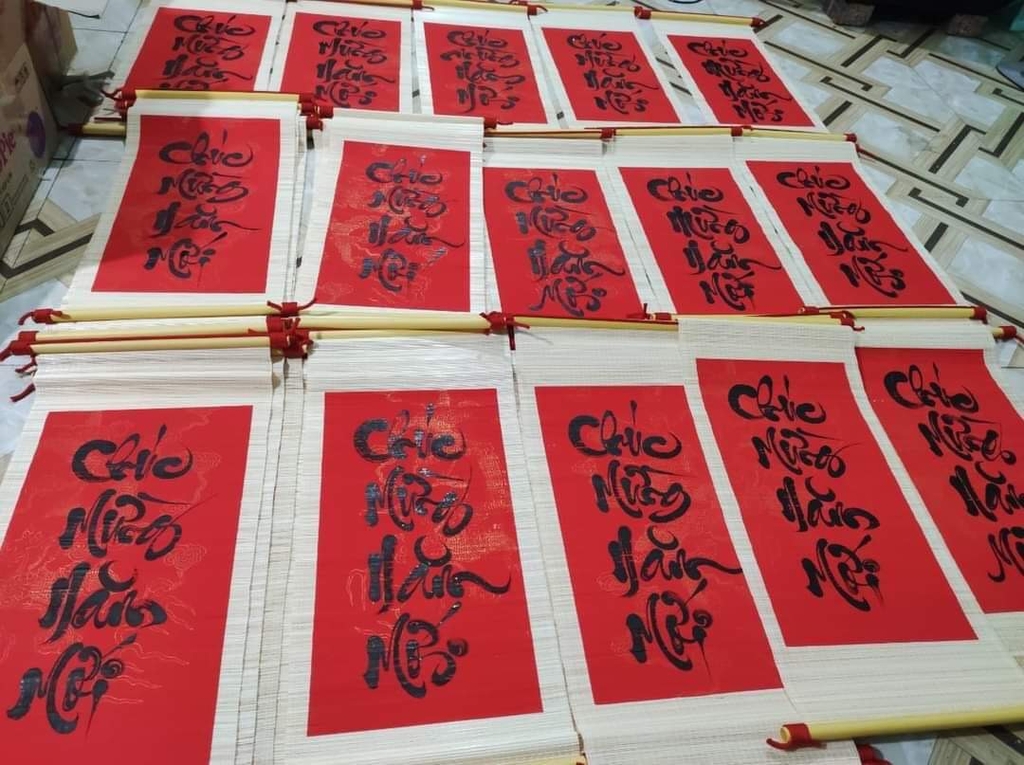 Chúc
Mừng
Năm
Mới
Chúc
Mừng
Năm
Mới
Chúc
Mừng
Năm
Mới
Chúc
Mừng
Năm
Mới
Chúc
Mừng
Năm
Mới
Chúc
Mừng
Năm
Mới
Chúc
Mừng
Năm
Mới
Chúc
Mừng
Năm
Mới
Chúc
Mừng
Năm
Mới
Chúc
Mừng
Năm
Mới
Chúc
Mừng
Năm
Mới
Chúc
Mừng
Năm
Mới
Chúc
Mừng
Năm
Mới
Chúc
Mừng
Năm
Mới
Chúc
Mừng
Năm
Mới
Pie